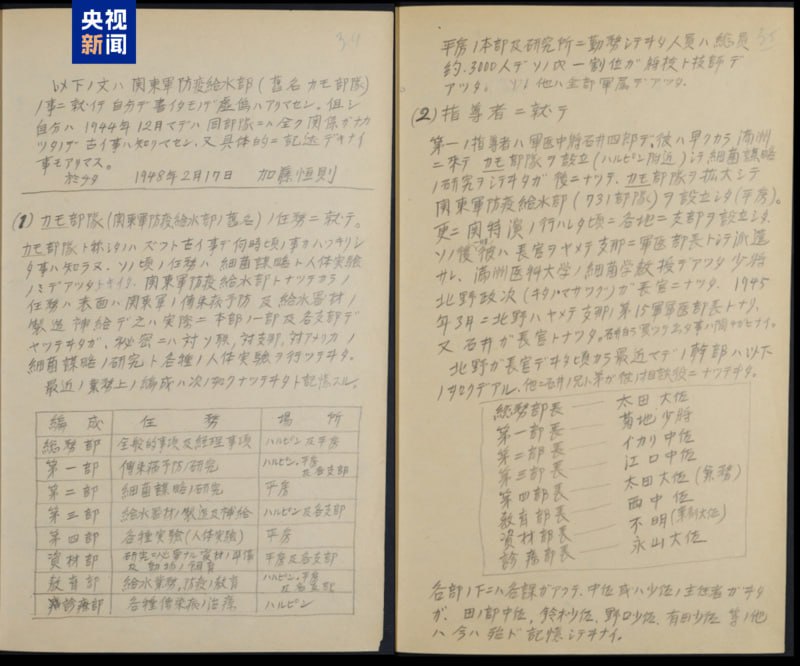 央视
新闻
34
以下ノ文ハ関東軍防疫給水部(舊名カモ部隊)
ノ事ニ就イテ自分デ書イタモノデ虚偽ハアリマセン。但シ
自分ハ1944年12月マデハ同部隊ニハ全ク関係ガナカ
ツタノデ古イ事ハ知リマセン、又具体的ニ記述デキナイ
事モアリマス。
於チタ 1948年2月17日 加藤恒則
(1) カモ部隊(関東軍防疫給水部ノ舊名)ノ任務ニ就テ。
カモ部隊ト称シタノハズツト古イ事デ何時頃ノ事カハツキリシ
タ事ハ知ラヌ、ソノ頃ノ任務ハ細菌謀略ト人体実験
ノミデアツタ 関東軍防疫給水部トナツテカラノ
任務ハ表面ハ関東軍ノ傳染病予防及給水器材ノ
製造補給デ之ハ実際ニ本部ノ一部及各支部デ
ヤツテヰタガ、秘密ニハ対ソ聯、対支那、対アメリカノ
細菌謀略ノ研究ト各種ノ人体実験ヲ行ツテヰタ。
最近ノ業務上ノ編成ハ次ノ如クナツテヰタト記憶スル。
編成 任務 場所
総務部 全般的事項及経理事項 ハルピン及平房
第一部 傳染病予防ノ研究 ハルピン、平房及各支部
第二部 細菌謀略ノ研究 平房
第三部 給水器材ノ製造及補給 ハルピン及各支部
第四部 各種実験(人体実験) 平房
資材部 研究ニ必要ナル資材ノ準備及動物ノ飼育 平房及各支部
教育部 給水業務、防疫ノ教育 ハルピン、平房及各支部
診療部 各種傳染病ノ治療 ハルピン
35
平房ノ本部及研究所ニ勤務シテヰタ人員ハ総員
約3000人デソノ内一割位ガ将校ト技師デ
アツタ。ソノ他ハ全部軍属デアツタ。
(2) 指導者ニ就テ
第一ノ指導者ハ軍医中将石井四郎デ、彼ハ早クカラ満洲
ニ来テカモ部隊ヲ設立(ハルピン附近)シテ細菌謀略
ノ研究ヲシテヰタガ後ニナツテ、カモ部隊ヲ拡大シテ
関東軍防疫給水部(731部隊)ヲ設立シタ(平房)。
更ニ関特演ノ行ハレタ頃ニ各地ニ支部ヲ設立シタ、
ソノ後彼ハ長官ヲヤメテ支那ニ軍医部長トシテ派遣
サレ、満洲医科大学ノ細菌学教授デアツタ少将
北野政次(キタノマサツグ)ガ長官ニナツタ、1945
年3月ニ北野ハヤメテ支那ノ第15軍軍医部長トナリ、
又石井ガ長官トナツタ。
北野ガ長官デヰタ頃カラ最近マデノ幹部ハ以下
ノ如クデアル、他ニ石井ノ兄ト弟ガ彼ノ相談役ニナツテヰタ。
総務部長 太田大佐
第一部長 菊地少将
第二部長 イカリ中佐
第三部長 江口中佐
第四部長 太田大佐(兼務)
教育部長 西中佐
資材部長 不明
診療部長 永山大佐
各部ノ下ニハ各課ガアツテ、中佐或ハ少佐ノ主任者ガヰタ
ガ、田ノ部中佐、鈴木少佐、野口少佐、有田少佐等ノ他
ハ今ハ殆ド記憶シテヰナイ。